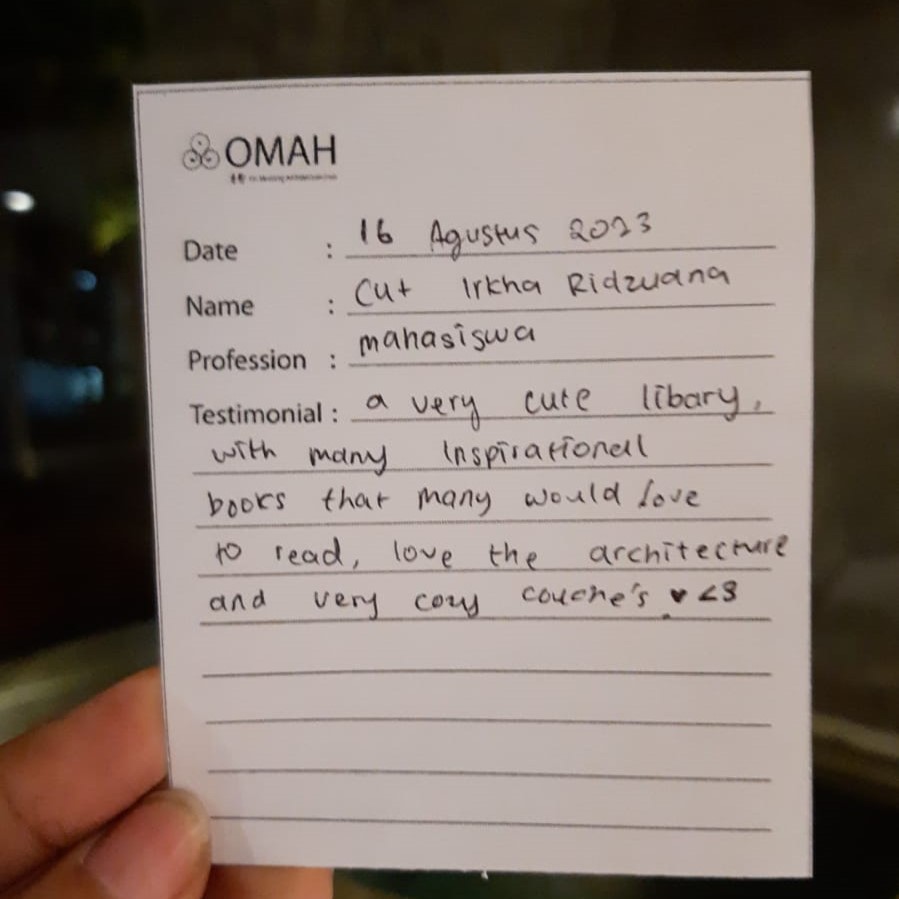 OMAH
Date : 16 Agustus 2023
Name : Cut Irkha Ridzuana
Profession : mahasiswa
Testimonial : a very cute libary,
with many inspirational
books that many would love
to read, love the architecture
and very cozy couche's ♥ <3